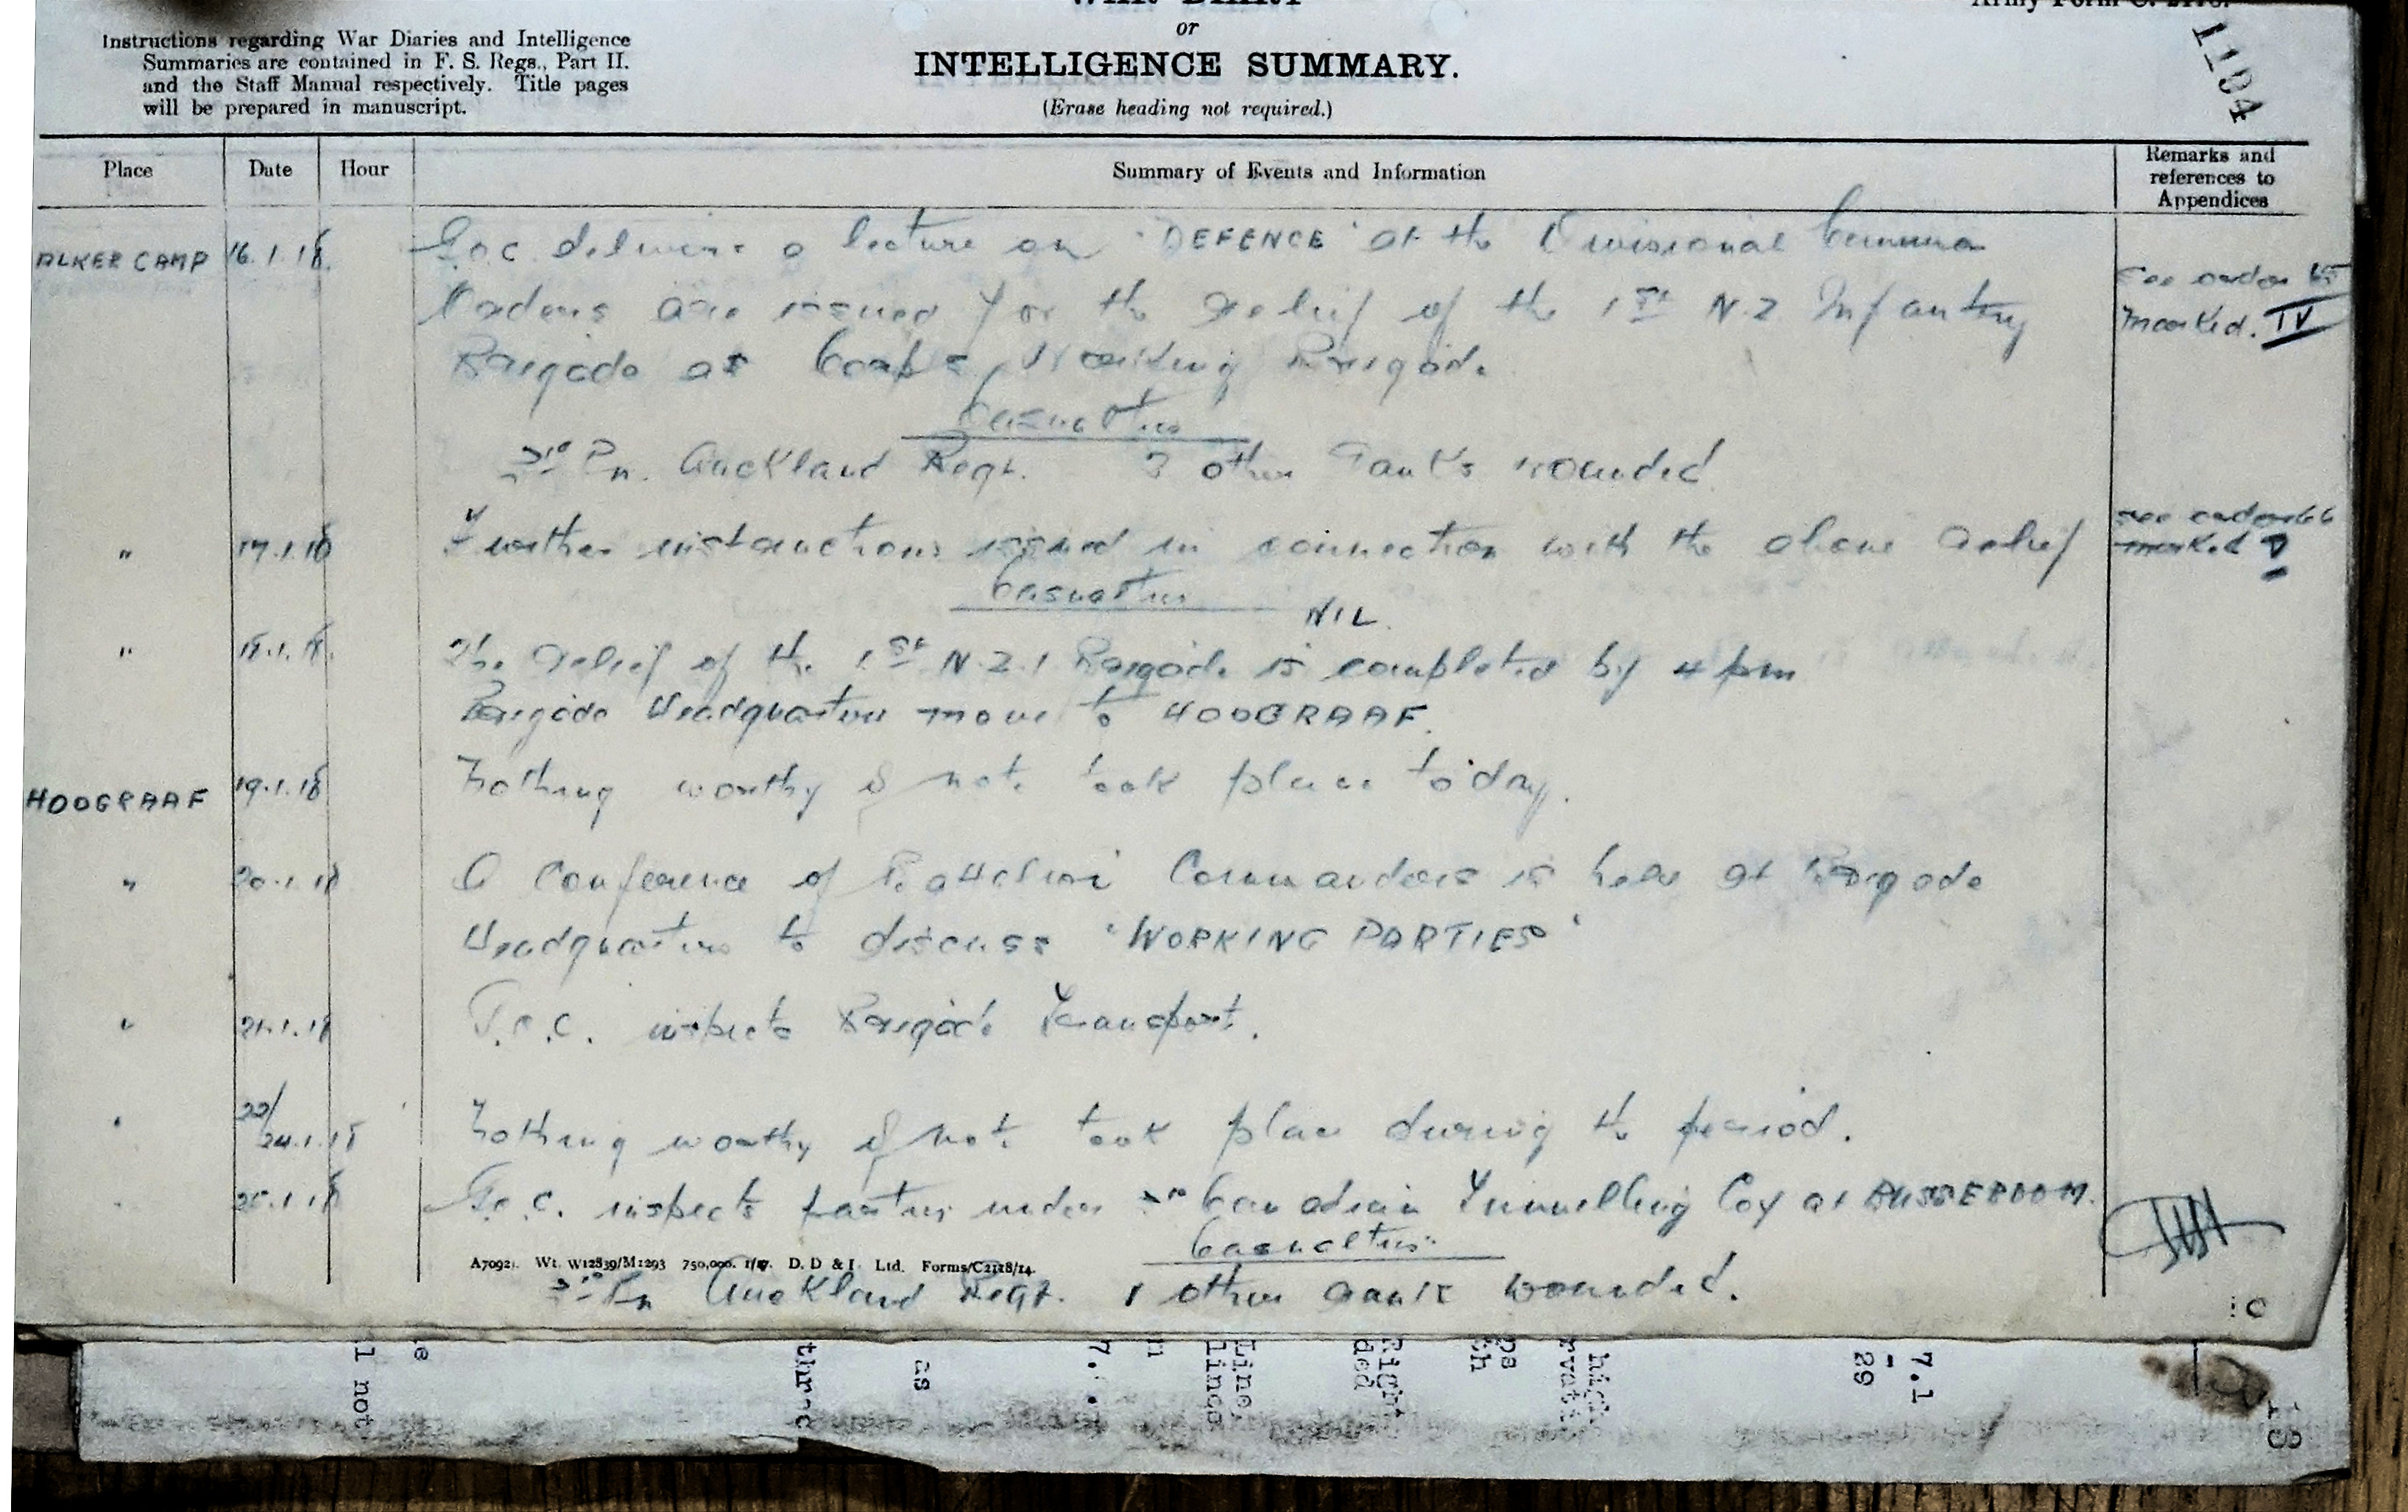 WAR DIARY
Army Form C. 2118.
or
INTELLIGENCE SUMMARY.
(Erase heading not required.)
Instructions regarding War Diaries and Intelligence
Summaries are contained in F. S. Regs., Part II.
and the Staff Manual respectively. Title pages
will be prepared in manuscript.
1194
Place Date Hour Summary of Events and Information Remarks and references to Appendices
ALKER CAMP 16.1.18. G.O.C. delivers a lecture on 'DEFENCE' at the Divisional
Orders are issued for the relief of the 1st N.Z Infantry
See order 65
marked. IV
Brigade as Corps Working Brigade
Casualties
Bn. Auckland Regt. 3 other ranks wounded
" 17.1.18 Further instructions issued in connection with the above relief
see order 66
marked V
Casualties
NIL.
" 18.1.18. The relief of the 1st N.Z.I Brigade is completed by 4 pm
Brigade Headquarters move to HOOGRAAF.
HOOGRAAF 19.1.18 Nothing worthy of note took place today.
" 20.1.18 A Conference of Battalion Commanders is held at Brigade
Headquarters to discuss 'WORKING PARTIES'
" 21.1.18 G.O.C. inspects Brigade Transport.
" 22/24.1.18 Nothing worthy of note took place during the period.
" 25.1.18 G.O.C. inspects parties under Canadian Tunnelling Coy at BUSSEBOOM.
Casualties
A7092. Wt. W12839/M1293 750,000. 1/17. D. D & L Ltd. Forms/C2118/14.
Bn Auckland Regt. 1 other rank wounded.
l not
as
Line,
lines
7.1
-
29
18